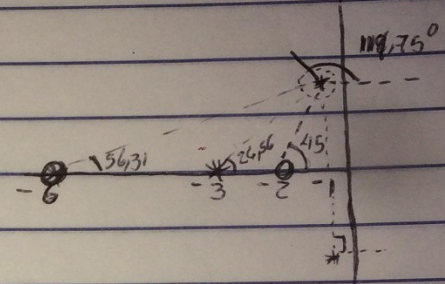 119,75°
56,31
26,56
45
-6
-3
-2
-1